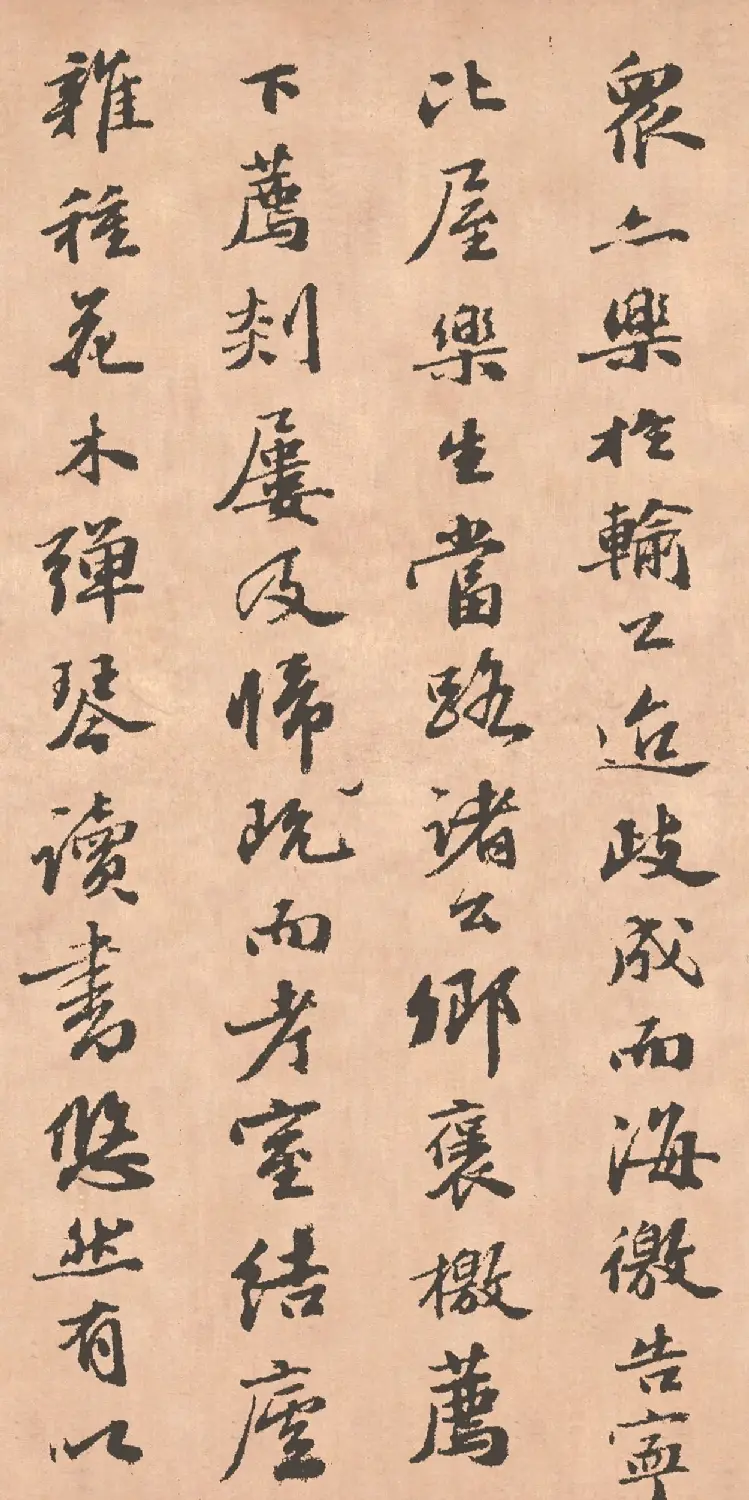 眾亦樂於輸工迨歧成而海徼告寧
比屋樂生當路諸公卿褒檄薦
下薦剡屢及悕既而考室結廬
雜種花木彈琴讀書悠然有以